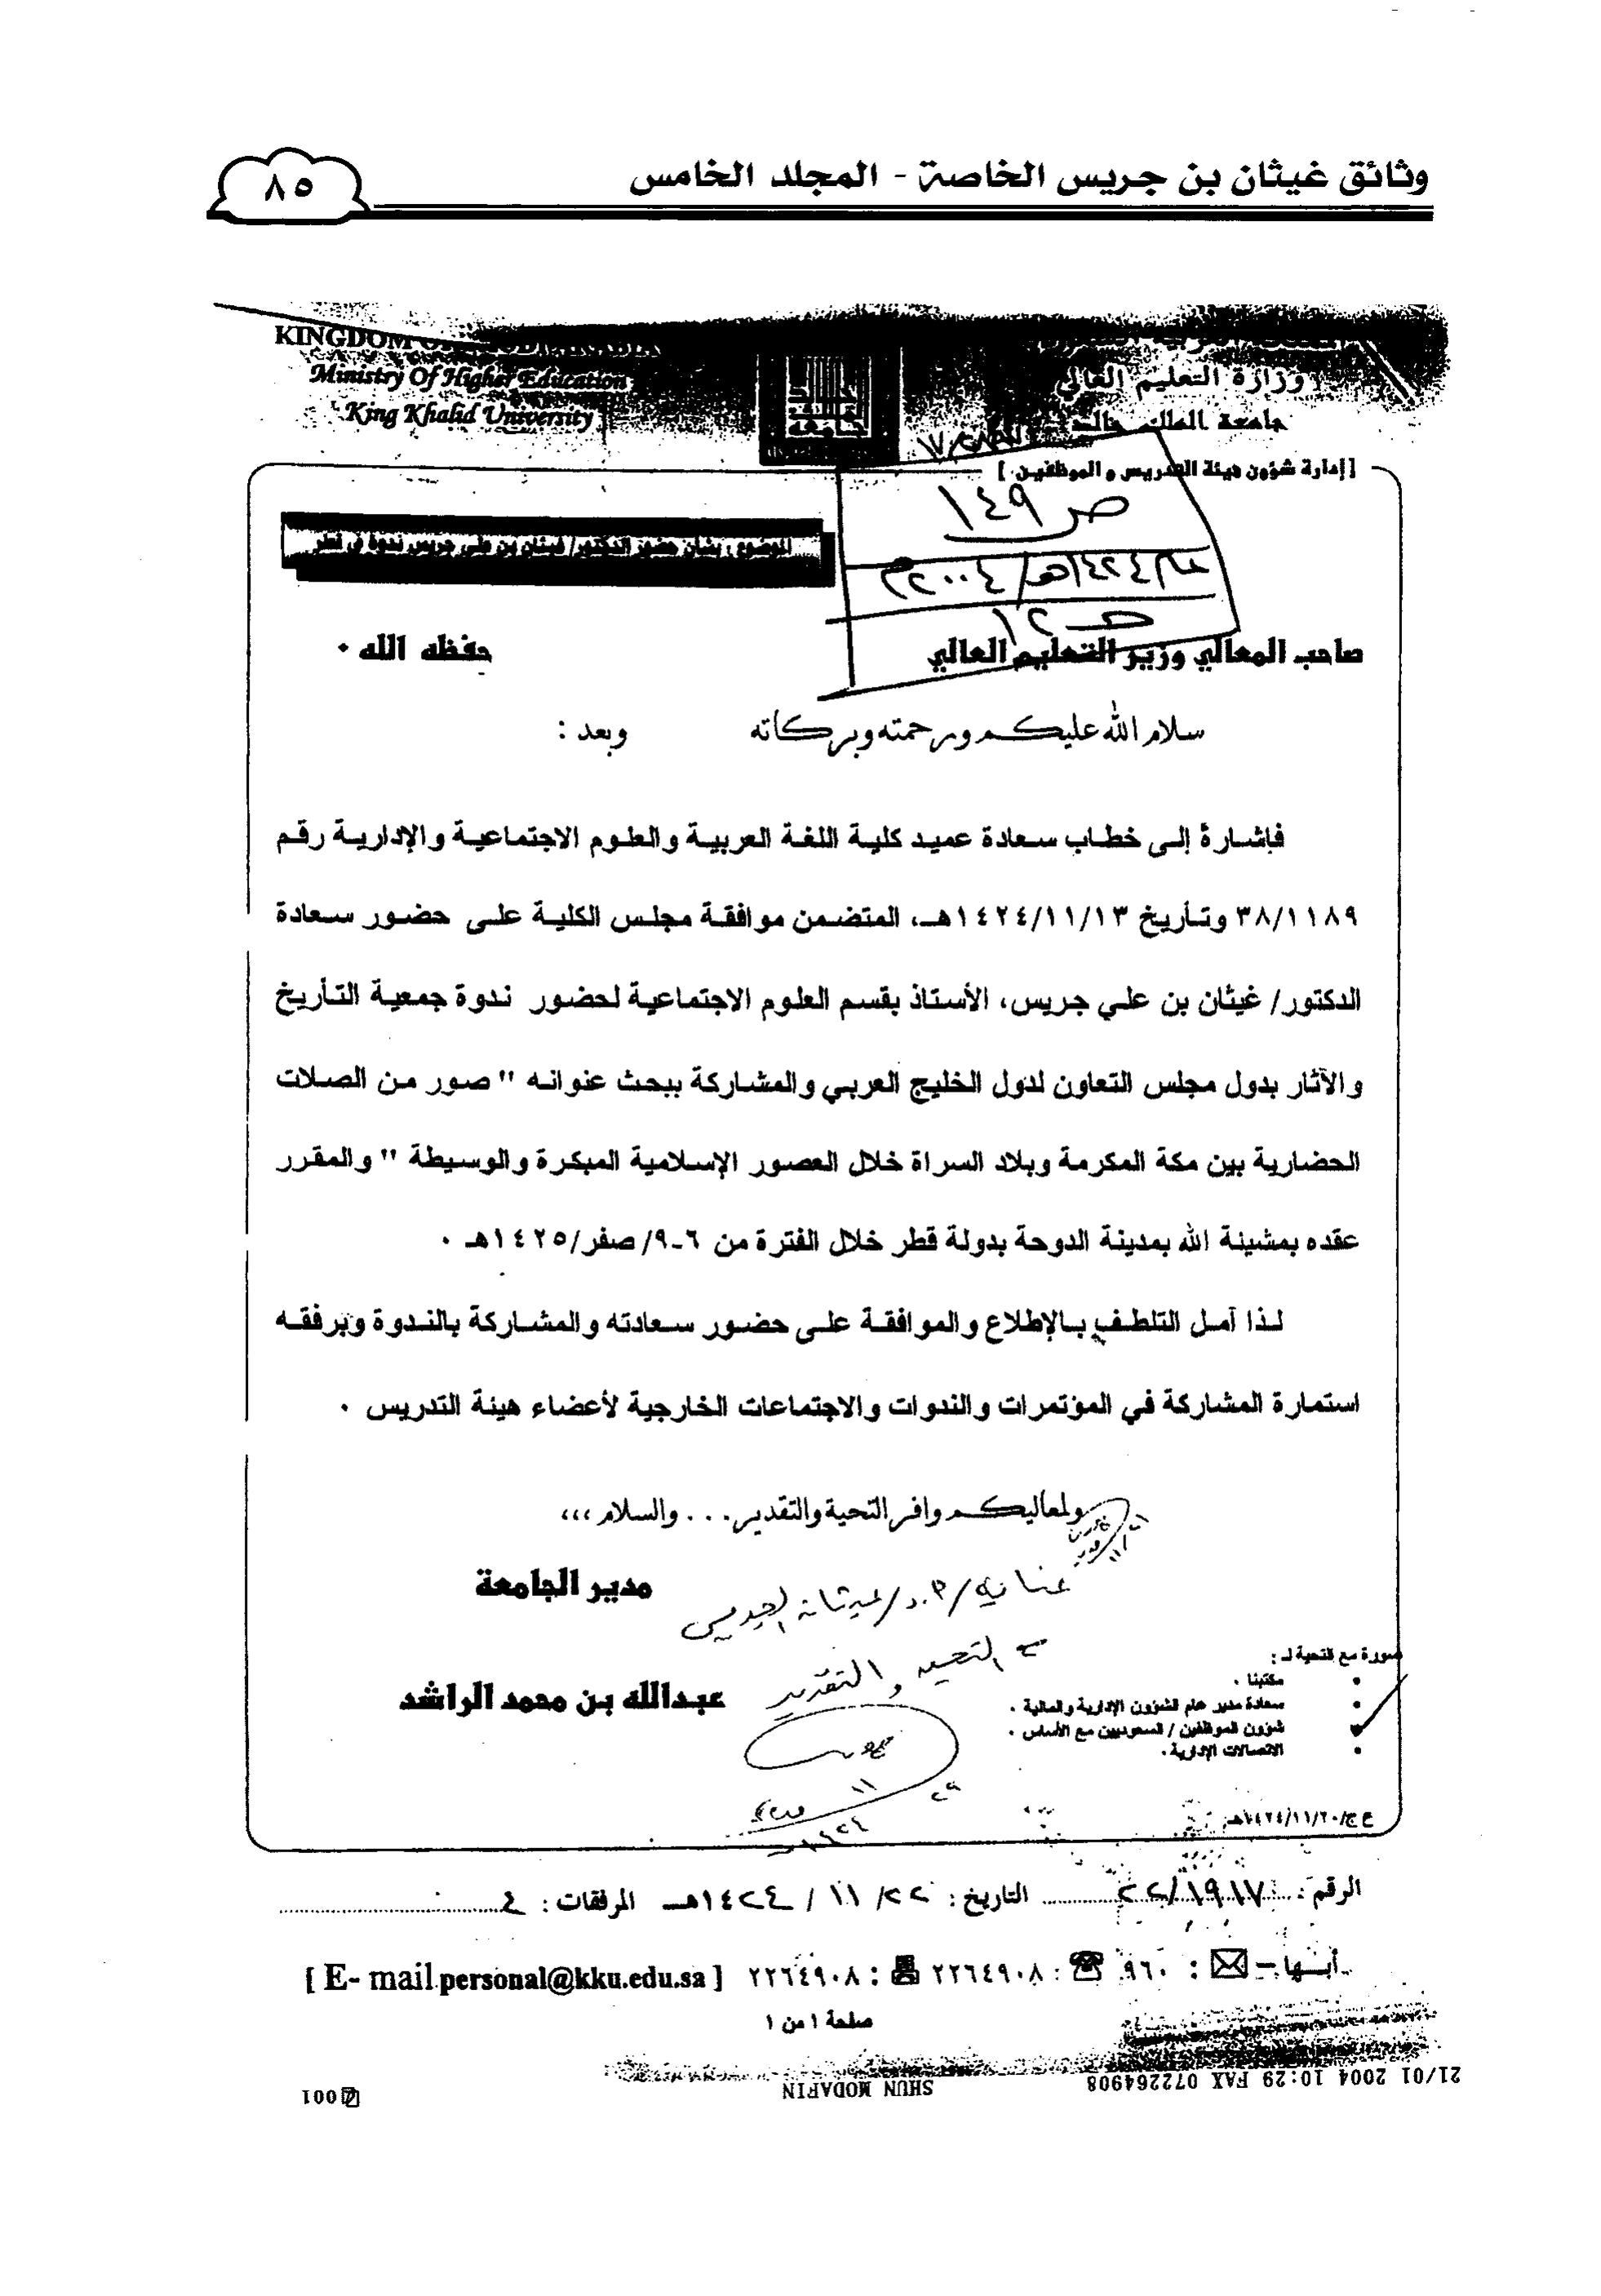 وثائق غيثان بن جريس الخاصة - المجلد الخامس
٨٥
KINGDOM
Ministry Of Higher Education
King Khalid University
وزارة التعليم العالي
جامعة الملك خالد
[ إدارة شؤون هيئة التدريس و الموظفين ]
ص ١٤٩
عام ١٤٢٤هـ / ٢٠٠٤م
الموضوع : بشأن حضور الدكتور/ غيثان بن علي جريس ندوة في قطر
صاحب المعالي وزير التعليم العالي حفظه الله ٠
سلام الله عليكم ورحمته وبركاته وبعد :
فإشارةً إلى خطاب سعادة عميد كلية اللغة العربية والعلوم الاجتماعية والإدارية رقم
٣٨/١١٨٩ وتأريخ ١٤٢٤/١١/١٣هـ، المتضمن موافقة مجلس الكلية على حضور سعادة
الدكتور/ غيثان بن علي جريس، الأستاذ بقسم العلوم الاجتماعية لحضور ندوة جمعية التأريخ
والآثار بدول مجلس التعاون لدول الخليج العربي والمشاركة ببحث عنوانه " صور من الصلات
الحضارية بين مكة المكرمة وبلاد السراة خلال العصور الإسلامية المبكرة والوسيطة " والمقرر
عقده بمشيئة الله بمدينة الدوحة بدولة قطر خلال الفترة من ٦-٩/ صفر/١٤٢٥هـ ٠
لذا آمل التلطف بالإطلاع والموافقة على حضور سعادته والمشاركة بالندوة وبرفقه
استمارة المشاركة في المؤتمرات والندوات والاجتماعات الخارجية لأعضاء هيئة التدريس ٠
ولمعاليكم وافر التحية والتقدير . . . والسلام ،،،
مدير الجامعة
عبدالله بن محمد الراشد
مع التحية والتقدير
صورة مع التحية لـ :
• مكتبنا ٠
• سعادة مدير عام الشؤون الإدارية والمالية ٠
• شؤون الموظفين / السعوديين مع الأساس ٠
• الاتصالات الإدارية ٠
ع ج/١٤٢٤/١١/٢٠هـ
الرقم : ٢٢/١٩١٧ التاريخ : ٢٢ / ١١ / ١٤٢٤هـ المرفقات : ٤
أبها - : ٩٦٠ : ٢٢٦٤٩٠٨ : ٢٢٦٤٩٠٨ [ E- mail.personal@kku.edu.sa ]
صفحة ١ من ١
21/01 2004 10:29 FAX 072264908 SHUN MODAFIN 001